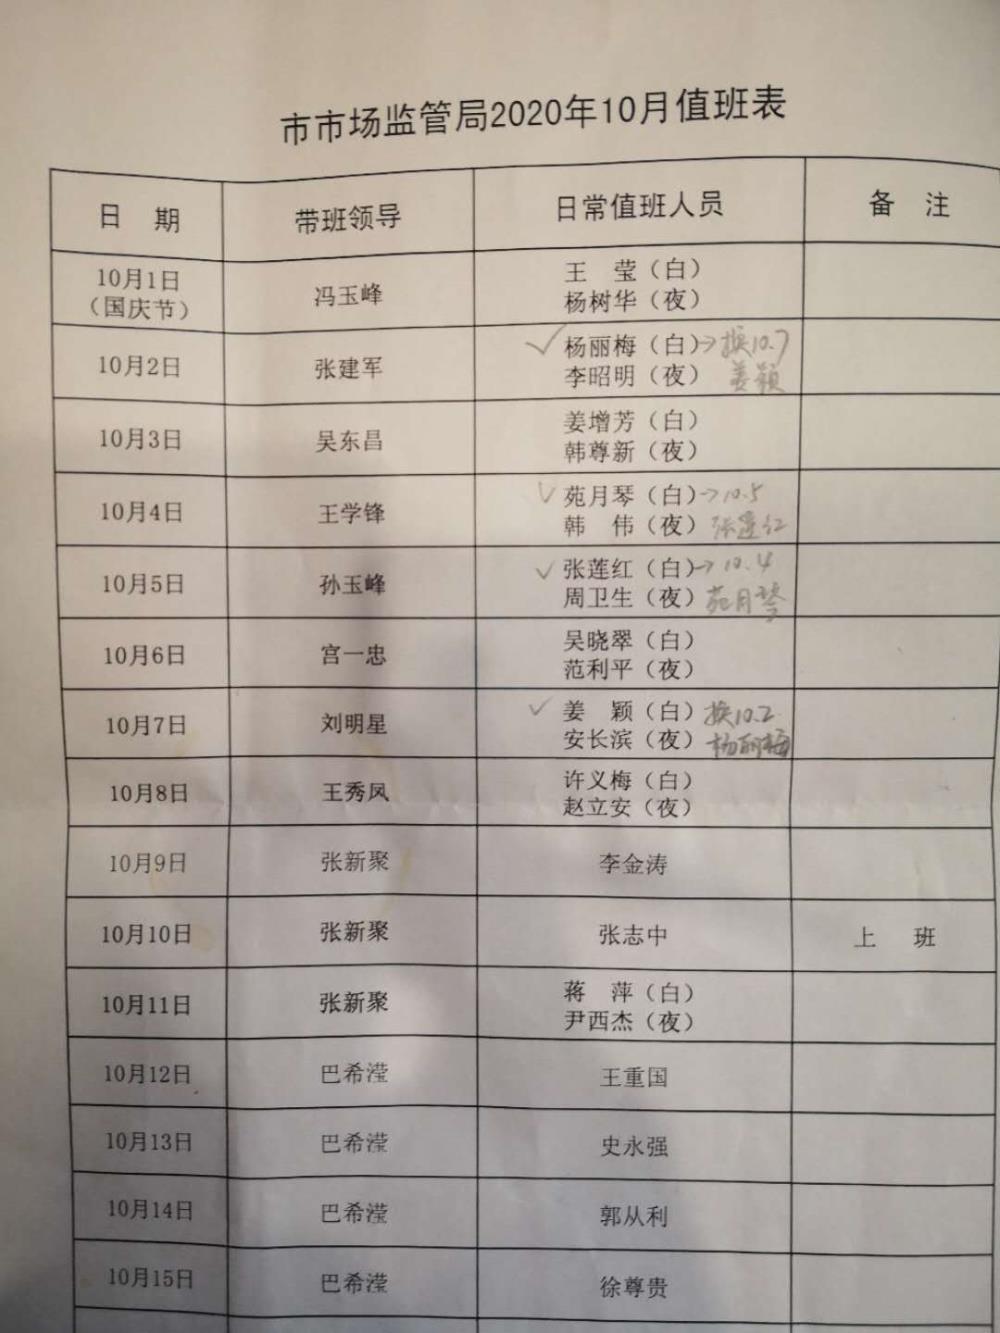 市市场监管局2020年10月值班表
日 期 带班领导 日常值班人员 备 注
10月1日
（国庆节）
冯玉峰
王 莹（白）
杨树华（夜）
10月2日
张建军
✓杨丽梅（白）→换10.7
李昭明（夜） 姜颖
10月3日
吴东昌
姜增芳（白）
韩尊新（夜）
10月4日
王学锋
✓苑月琴（白）→10.5
韩 伟（夜）张莲红
10月5日
孙玉峰
✓张莲红（白）→10.4
周卫生（夜）苑月琴
10月6日
宫一忠
吴晓翠（白）
范利平（夜）
10月7日
刘明星
✓姜 颖（白）换10.2
安长滨（夜）杨丽梅
10月8日
王秀凤
许义梅（白）
赵立安（夜）
10月9日 张新聚 李金涛
10月10日 张新聚 张志中 上 班
10月11日
张新聚
蒋 萍（白）
尹西杰（夜）
10月12日 巴希滢 王重国
10月13日 巴希滢 史永强
10月14日 巴希滢 郭从利
10月15日 巴希滢 徐尊贵